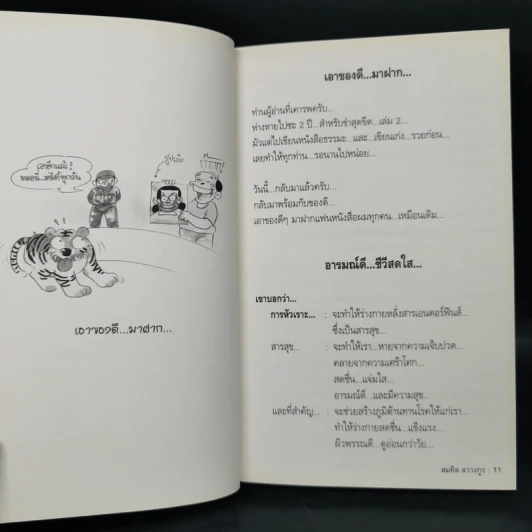 เอาอีกแล้ว!
หมอนี่..ขยี้ทุกวัน
เอาของดี...มาฝาก...
เอาของดี...มาฝาก...
ท่านผู้อ่านที่เคารพครับ...
ห่างหายไปซะ 2 ปี...สำหรับขำสุดขีด...เล่ม 2...
มัวแต่ไปเขียนหนังสือธรรมะ...และ...เขียนเก่ง...รวยก่อน...
เลยทำให้ทุกท่าน...รอนานไปหน่อย...
วันนี้...กลับมาแล้วครับ...
กลับมาพร้อมกับของดี...
เอาของดีๆ มาฝากแฟนหนังสือผมทุกคน...เหมือนเดิม...
อารมณ์ดี...ชีวีสดใส...
เขาบอกว่า...
การหัวเราะ... : จะทำให้ร่างกายหลั่งสารเอนดอร์ฟินส์...
ซึ่งเป็นสารสุข...
สารสุข... : จะทำให้เรา...หายจากความเจ็บปวด...
คลายจากความเศร้าโศก...
สดชื่น...แจ่มใส...
อารมณ์ดี...และมีความสุข...
และที่สำคัญ... : จะช่วยสร้างภูมิต้านทานโรคให้แก่เรา...
ทำให้ร่างกายสดชื่น...แข็งแรง...
ผิวพรรณดี...ดูอ่อนกว่าวัย...
สมคิด ลวางกูร : 11